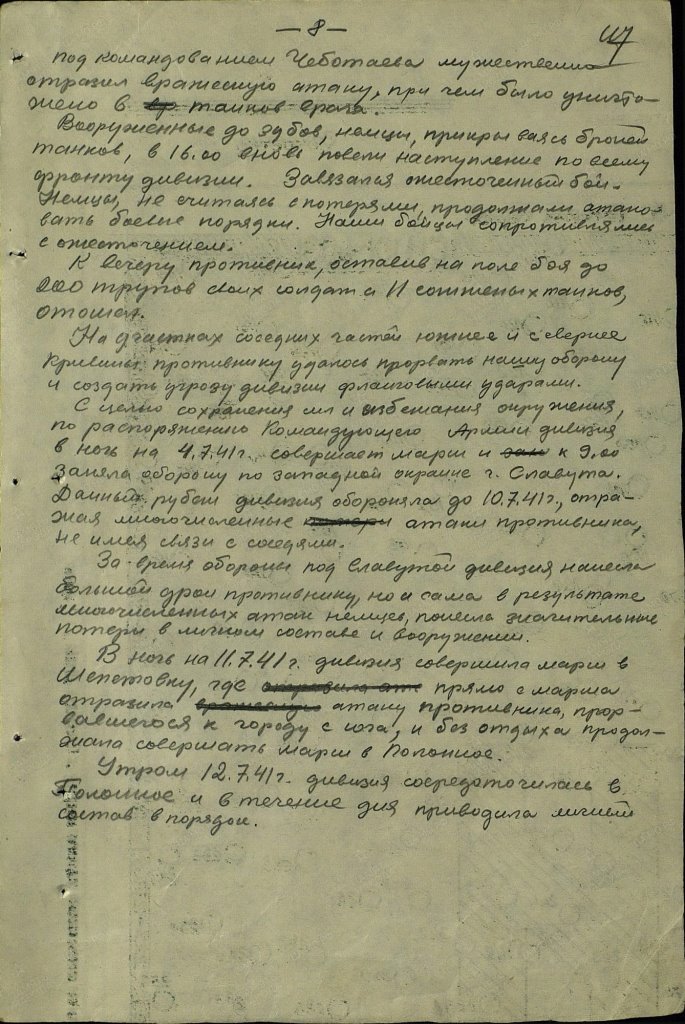 — 8 —
под командованием Чеботаева мужественно
отразил вражескую атаку, при чем было уничто-
жено 8 танков врага.
Вооруженные до зубов, немцы, прикрываясь броней
танков, в 16.00 вновь повели наступление по всему
фронту дивизии. Завязался ожесточенный бой.
Немцы, не считаясь с потерями, продолжали атако-
вать боевые порядки. Наши бойцы сопротивлялись
с ожесточением.
К вечеру противник, оставив на поле боя до
трупов своих солдат и 11 сожженых танков,
отошел.
На участках соседних частей южнее и севернее
Кривины противнику удалось прорвать нашу оборону
и создать угрозу дивизии фланговыми ударами.
С целью сохранения и избежания окружения,
по распоряжению Командующего Армии дивизия
в ночь на 4.7.41г. совершает марш и к 9.00
заняла оборону по западной окраине г. Славута.
Данный рубеж дивизия обороняла до 10.7.41г., отра-
жая многочисленные атаки противника,
не имея связи с соседями.
За время обороны под Славутой дивизия нанесла
большой урон противнику, но и сама в результате
многочисленных атак немцев, понесла значительные
потери в личном составе и вооружении.
В ночь на 11.7.41г. дивизия совершила марш в
Шепетовку, где прямо с марша
отразила атаку противника, прор-
вавшегося к городу с юга, и без отдыха продол-
жала совершать марш в Полонное.
Утром 12.7.41г. дивизия сосредоточилась в
Полонное и в течение дня приводила личный
состав в порядок.